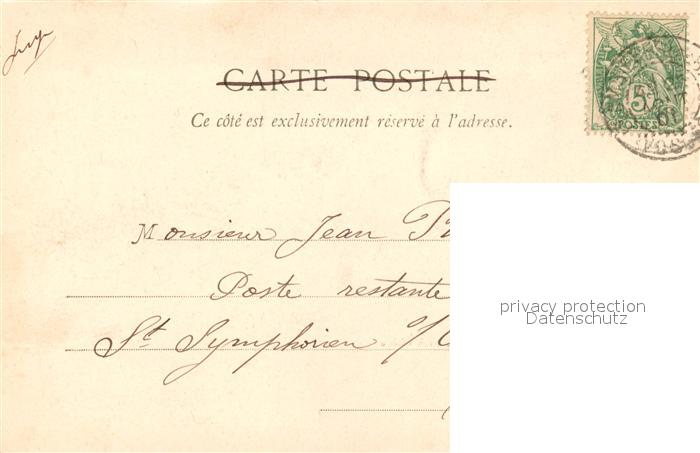 CARTE POSTALE
Ce côté est exclusivement réservé à l'adresse.
5
POSTES
privacy protection
Datenschutz
Monsieur Jean
Poste restante
St Symphorien